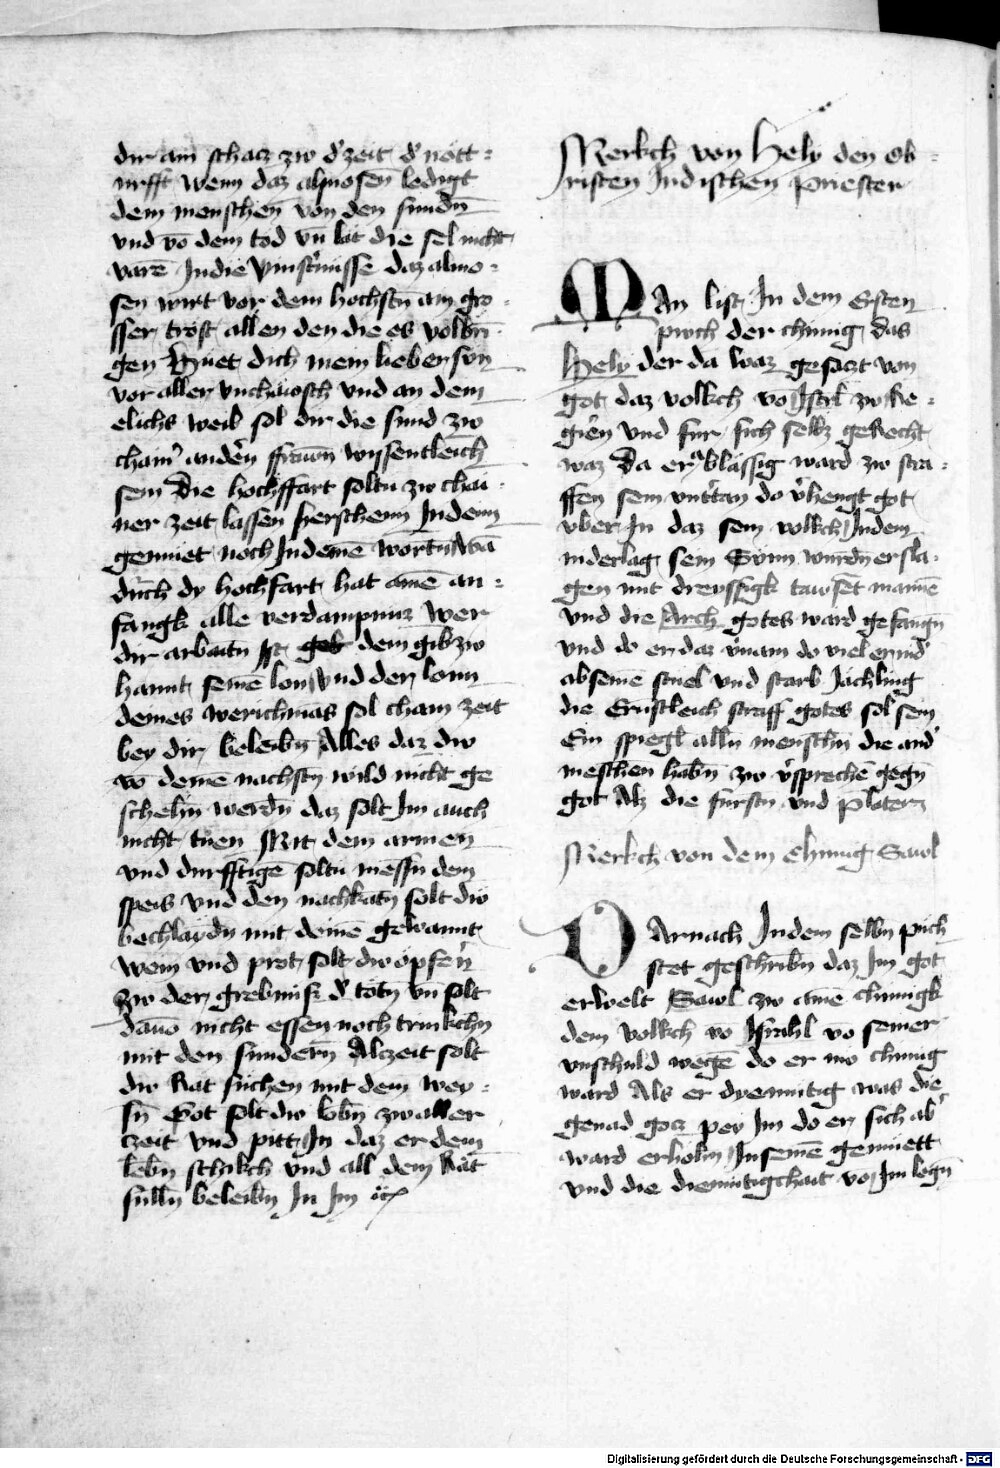 dir ain schacz zw d' zeit d' nött=
urfft wenn daz almosen ledigt
dem menschen von den sundn̄
vnd vō dem tod vn̄ lät die sel nicht
varē In die vinst'nüsse daz almo=
sen wirt vor dem hochstn̄ ain gro=
sser trost allen den die es volbri=
gen Huet dich mein lieber sun
vor aller vnchäwsch vnd an dem
elichs weib sol dir die sund zw
cham' andern frawn wissentleich
sein Die hochffart soltu zw chai=
ner zeit lassen herschenn In deim
gemüet noch In deinē wortn̄ Wā
durch dy hochfart hat ainē an=
fangk alle verdampnuz Wer
dir arbaitn ist dem gib zw
hannt seinē lon vnd der lonn
deines werichmans sol chain zeit
bey dir beleibn̄ Alles daz dw
vō deinē nachstn̄ wild nicht ge
schehn̄ werdn̄ daz solt Im auch
nicht tuen Mit dem armen
vnd durfftigē soltu messn̄ dein
speis vnd den nachkatn̄ solt dw
bechlaidn̄ mit deinē gewannt
wein vnd prot solt dw opfern
zw der grebnüss d' totn̄ vn̄ solt
dauō nicht essen noch trinkchn̄
mit den sundern̄ Alczeit solt
dw Rat suchen mit dem wey=
sn̄ Got solt dw lobn̄ zw aller
czeit vnd pitt In daz er dein
lebn̄ schikch vnd all dein Rät
sulln̄ beleibn̄ In Im
Merkch von Hely den Ob=
risten Judischen priester
MAn list In dem Ersten
puech der chunig das
Hely der da waz gesaczt von
got daz volkch vō Isrl zw Re=
giern vnd fur sich selbs gerecht
waz Da er ablässig ward zw stra=
ffen sein vnt'tan do v'hengt got
vber In daz sein volkch In dem
niderlag sein Sünn wurdn̄ ersla=
gen mit dreyssigk tawset mannē
vnd die Arch gotes ward gefangn̄
vnd do er daz v'nam do viel er nid'
ab seinē stuel vnd starb Jächling
die Ernstleich straff gotes sol sein
Ein spiegl alln̄ menschn̄ die and'
meschen habn̄ zw v'sprechē gegn̄
got Alz die fursten vnd Platern
Merkch von dem chunig Sawl
DArnach In dem selbn̄ puch
stet geschribn̄ daz Im got
erwelt Sawl zw ainē chunigk
dem volkch vō Israhl vō seiner
vnschuld wegē do er nw chunig
ward Als er dyemütig was die
genad gocz pey Im do er sich ab'
ward erhohn̄ In seinē gemüett
vnd die diemütigchait vō Im legn̄
Digitalisierung gefördert durch die Deutsche Forschungsgemeinschaft - DFG